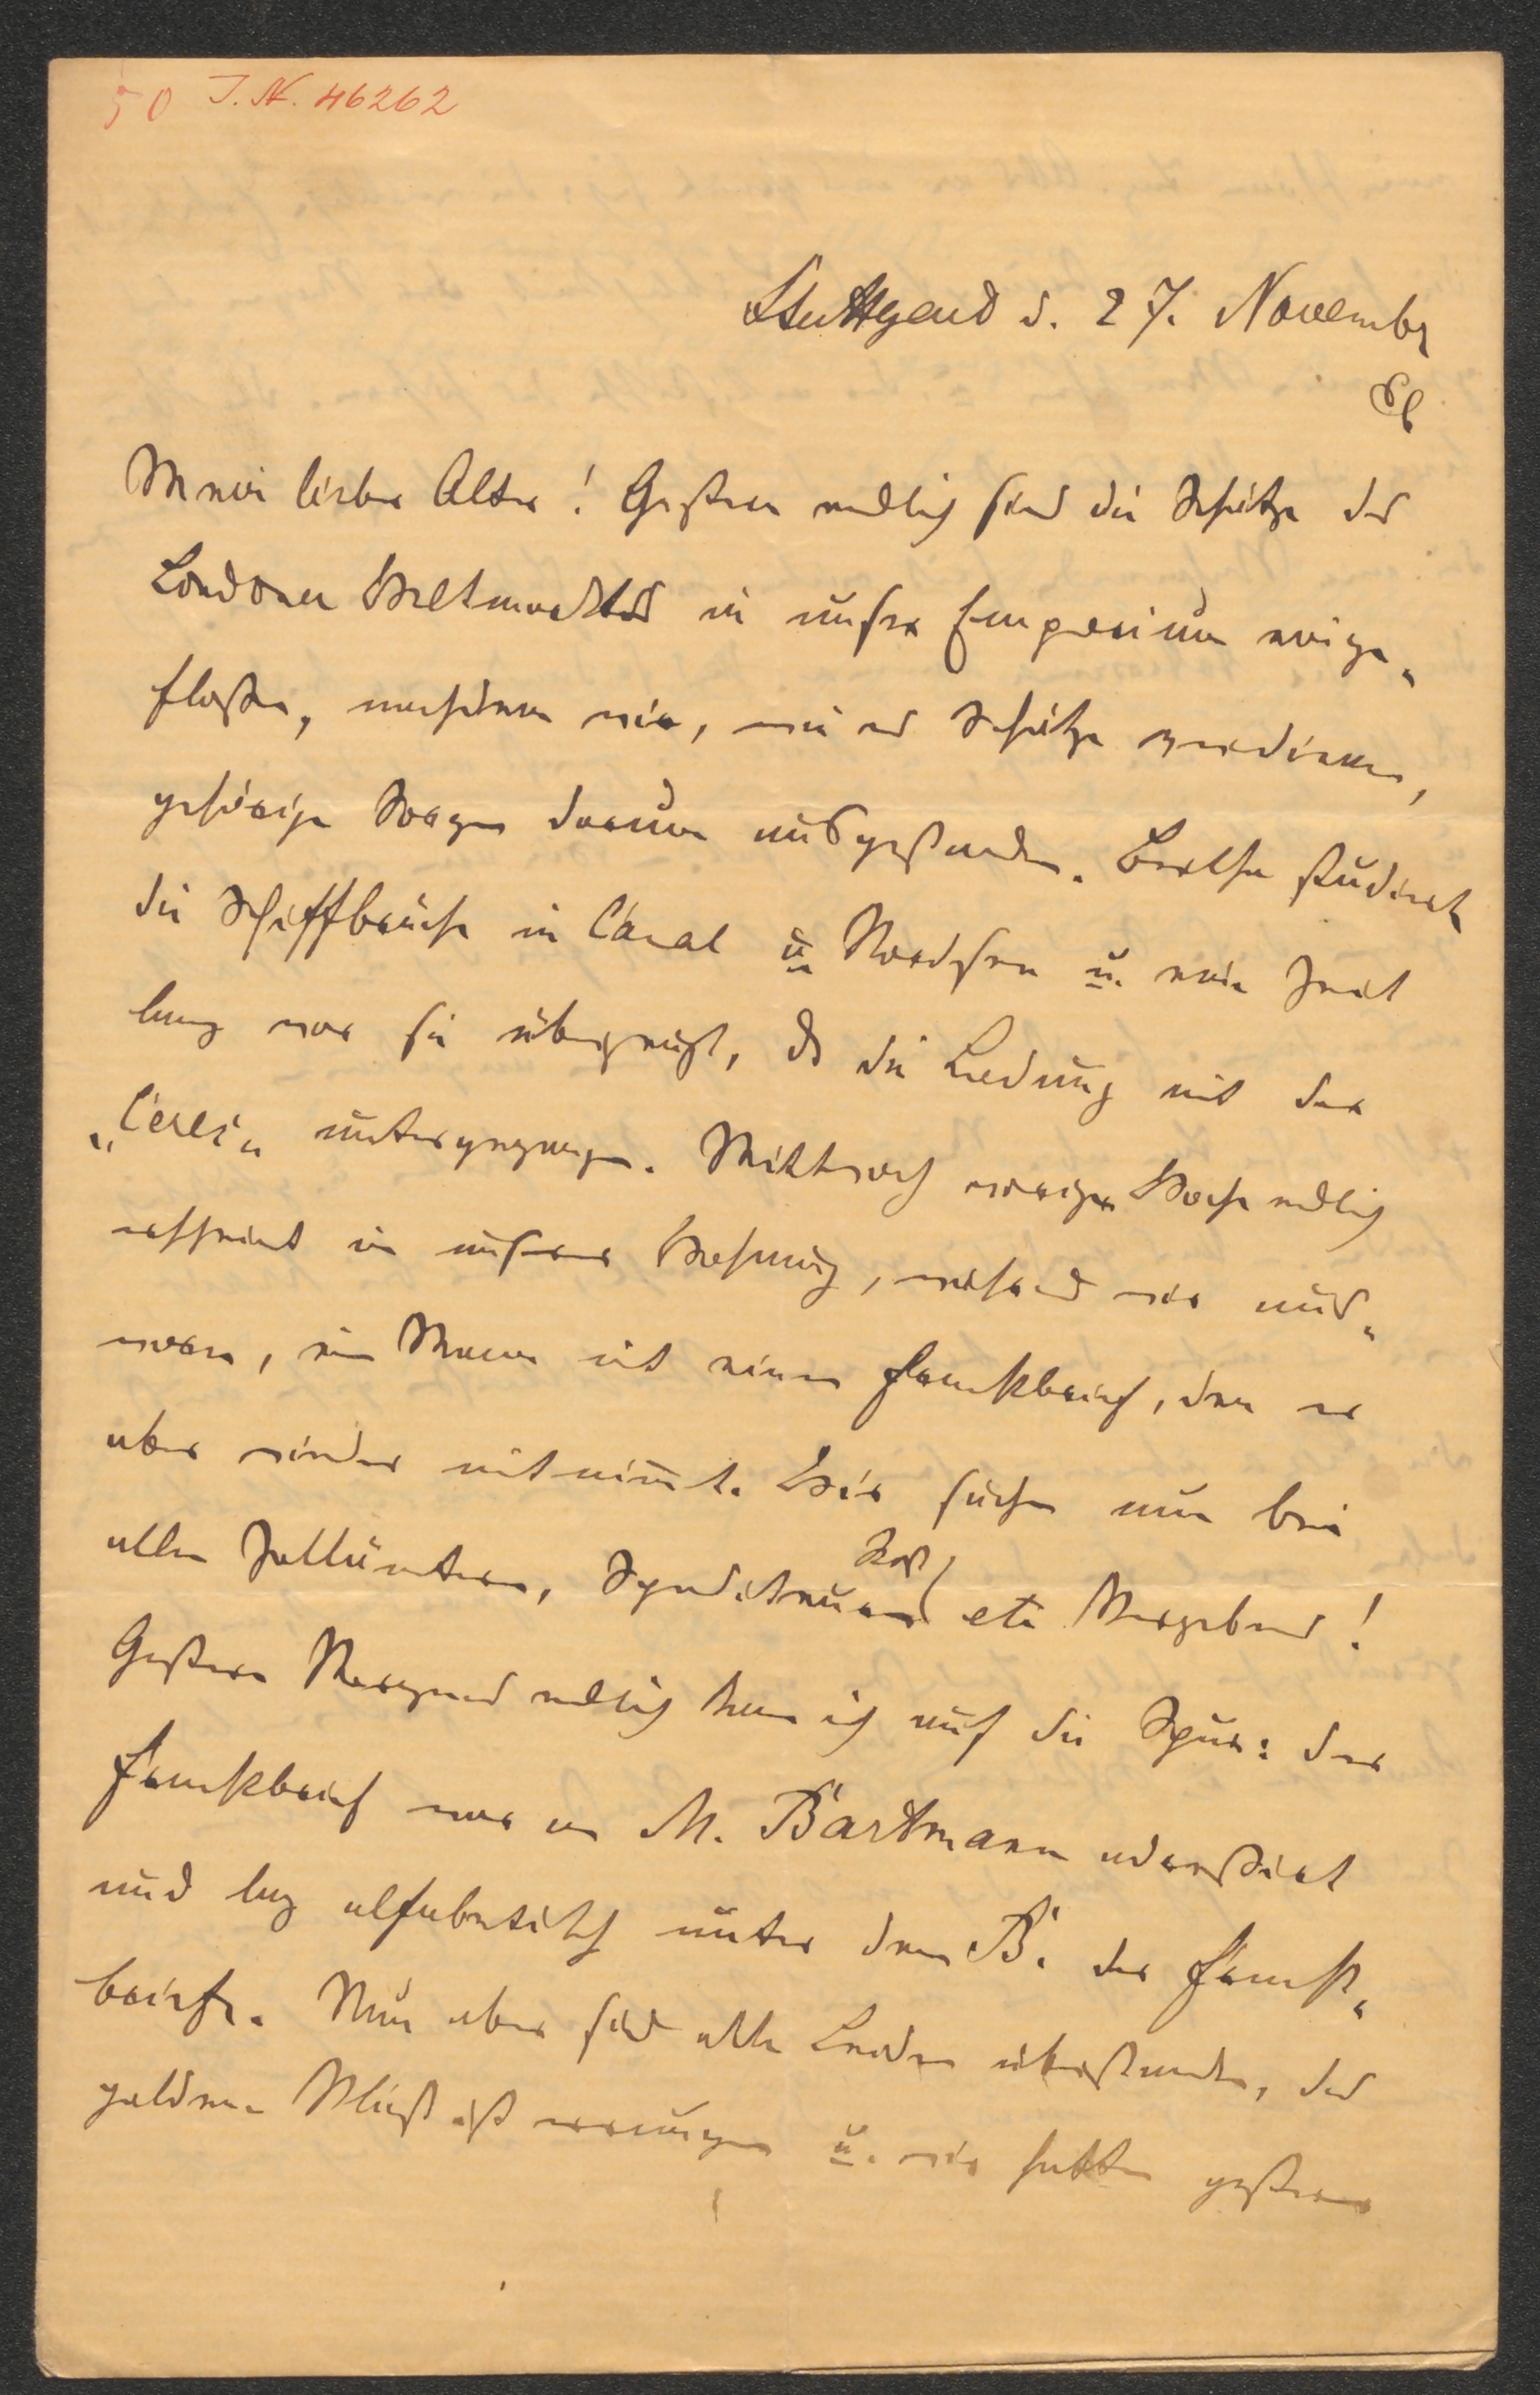 50 J. N. 46262
Stuttgart d. 27. November
86
Mein lieber Alter! Gestern endlich sind die Schätze des
Londoner Weltmarktes in unser Emporium einge-
floßen, nachdem wir, wie es Schätze verdienen,
gehörige Sorgen darum ausgestanden. Bertha studirte
die Schiffbrüche in Canal u. Nordsee u. eine Zeit
lang war sie überzeugt, daß die Ladung mit der
„Ceres“ untergegangen. Mittwoch voriger Woche endlich
erscheint in unserer Wohnung, während wir aus-
waren, ein Mann mit einem Frachtbrief, den er
aber wieder mitnimt. Wir suchen nun bei
allen Zollämtern, Spediteuren, Post etc Vergebens!
Gestern Morgens endlich kam ich auf die Spur: der
Frachtbrief war an M. Bartmann adressirt
und lag alfabetisch unter dem B. der Fracht-
briefe. Nun aber sind alle Leiden überstanden, das
goldene Vließ ist errungen u. wir hatten gestern